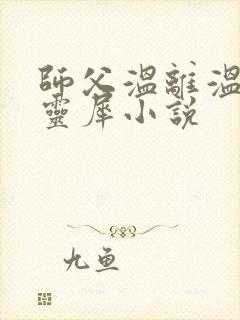 師父溫離溫
靈犀小說
九魚